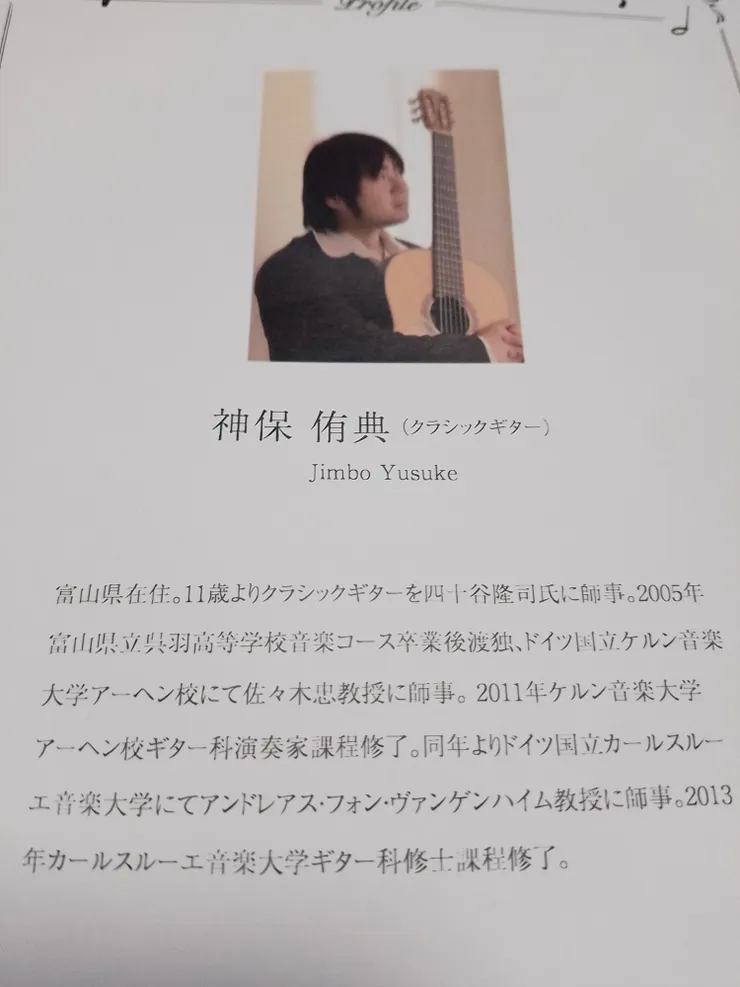 Profile
神保 侑典(クラシックギター)
Jimbo Yusuke
富山県在住。11歳よりクラシックギターを四十谷隆司氏に師事。2005年
富山県立呉羽高等学校音楽コース卒業後渡独、ドイツ国立ケルン音楽
大学アーヘン校にて佐々木忠教授に師事。2011年ケルン音楽大学
アーヘン校ギター科演奏家課程修了。同年よりドイツ国立カールスルー
エ音楽大学にてアンドレアス・フォン・ヴァンゲンハイム教授に師事。2013
年カールスルーエ音楽大学ギター科修士課程修了。